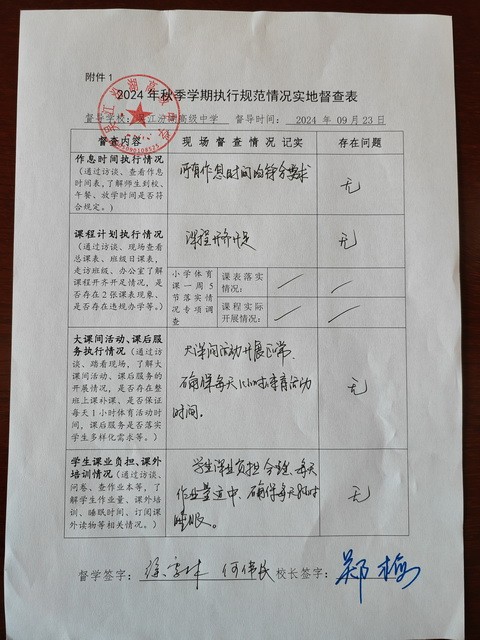 附件1
2024年秋季学期执行规范情况实地督查表
督导学校:吴江汾湖高级中学 督导时间: 2024 年 09 月 23 日
督查内容 现场督查情况记实 存在问题
作息时间执行情况
(通过访谈、查看作息
时间表,了解师生到校、
午餐、放学时间是否符
合规定。)
所有作息时间均符合要求
无
课程计划执行情况
(通过访谈、现场查看
总课表、班级日课表,
走访班级、办公室了解
课程开齐开足情况,是
否存在2张课表现象、
是否存在违规办学等。)
课程开齐开足
无
小学体育
课一周5
节落实情
况专项调
查
课表落实
情况:
课程实际
开展情况:
大课间活动、课后服
务执行情况(通过访
谈、踏看现场,了解大
课间活动、课后服务的
开展情况,是否存在整
班上课补课、是否保证
每天1小时体育活动时
间,课后服务是否落实
学生多样化需求等。)
大课间活动开展正常,
确保每天1小时体育活动
时间。
无
学生课业负担、课外
培训情况(通过访谈、
问卷、查作业本等,了
解学生作业量、课外培
训、睡眠时间、订阅课
外读物等相关情况。)
学生课业负担合理,每天
作业量适中,确保每天8小时
睡眠。
无
督学签字: 何伟民 校长签字: